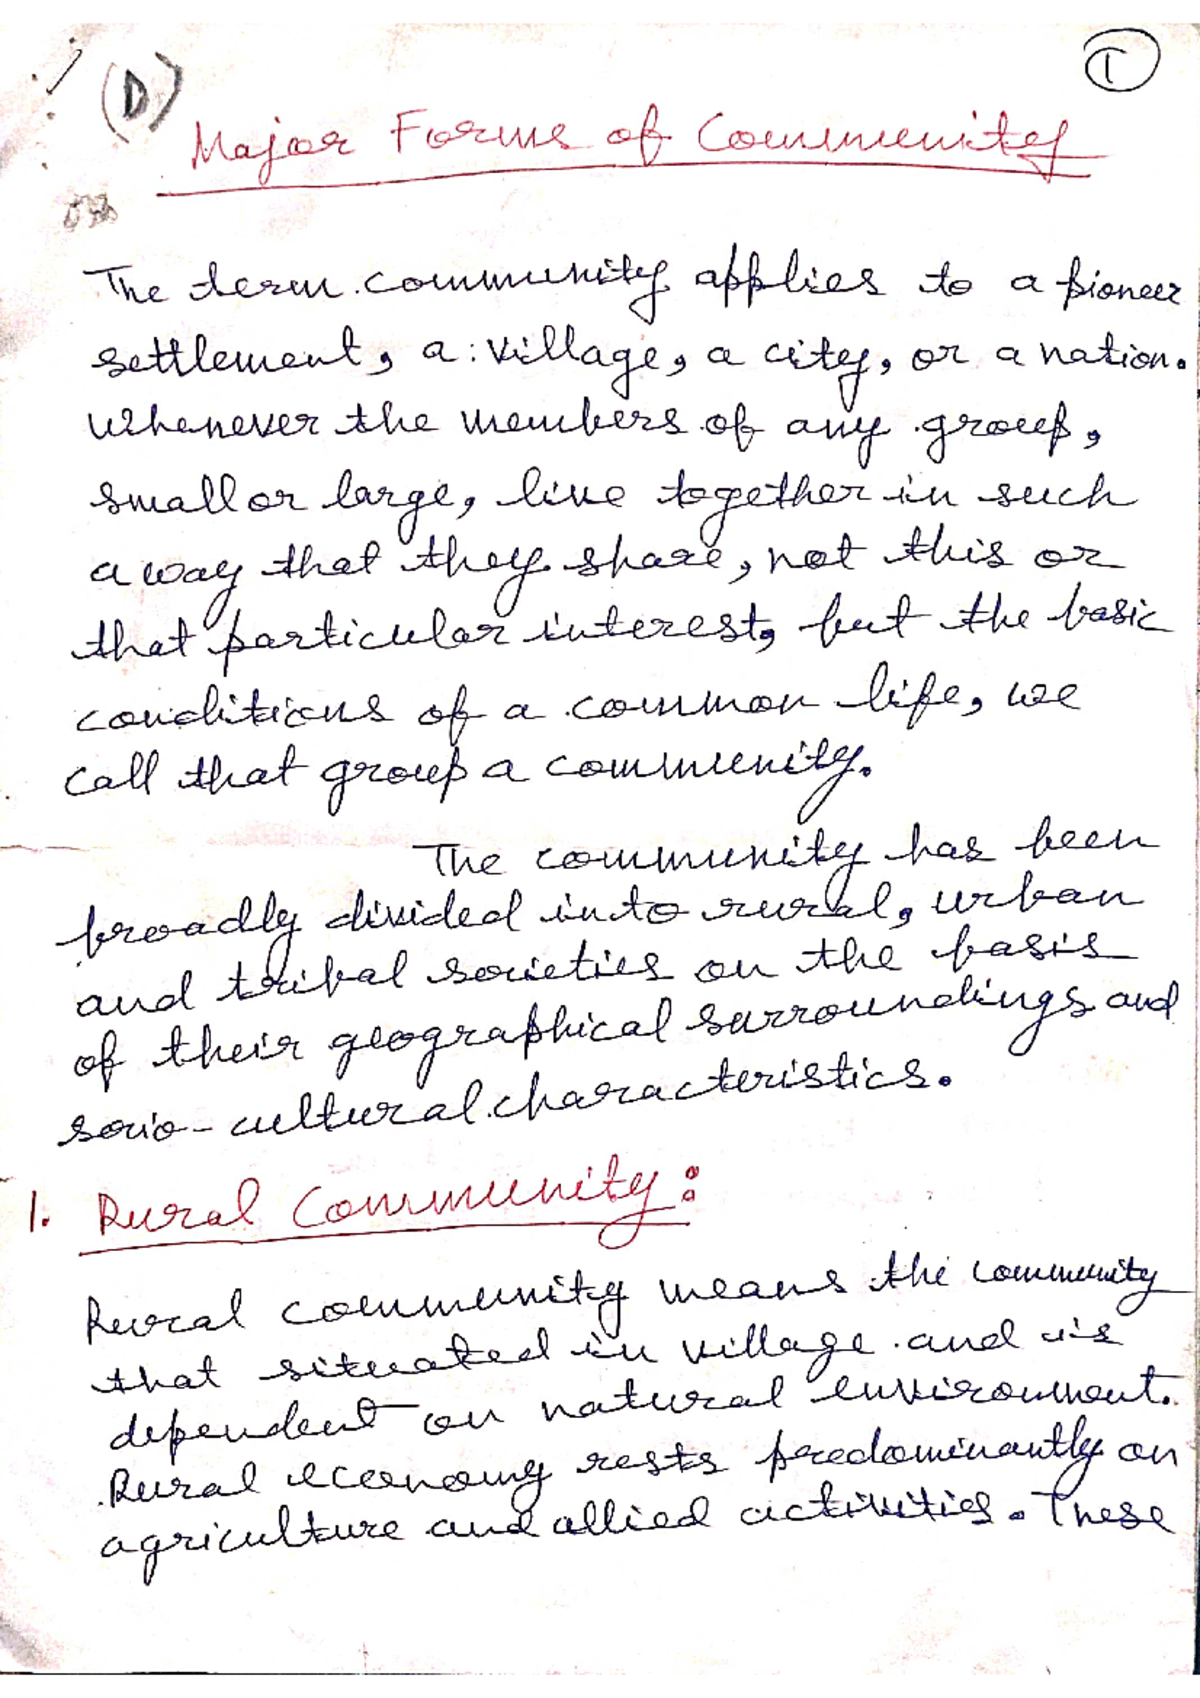 (D)
1
Major Forms of Community
The term community applies to a pioneer
settlement, a village, a city, or a nation.
Whenever the members of any group,
small or large, live together in such
a way that they share, not this or
that particular interest, but the basic
conditions of a common life, we
call that group a community.
The community has been
broadly divided into rural, urban
and tribal societies on the basis
of their geographical surroundings and
socio-cultural characteristics.
1. Rural Community:
Rural community means the community
that situated in village and is
dependent on natural environment.
Rural economy rests predominantly on
agriculture and allied activities. These